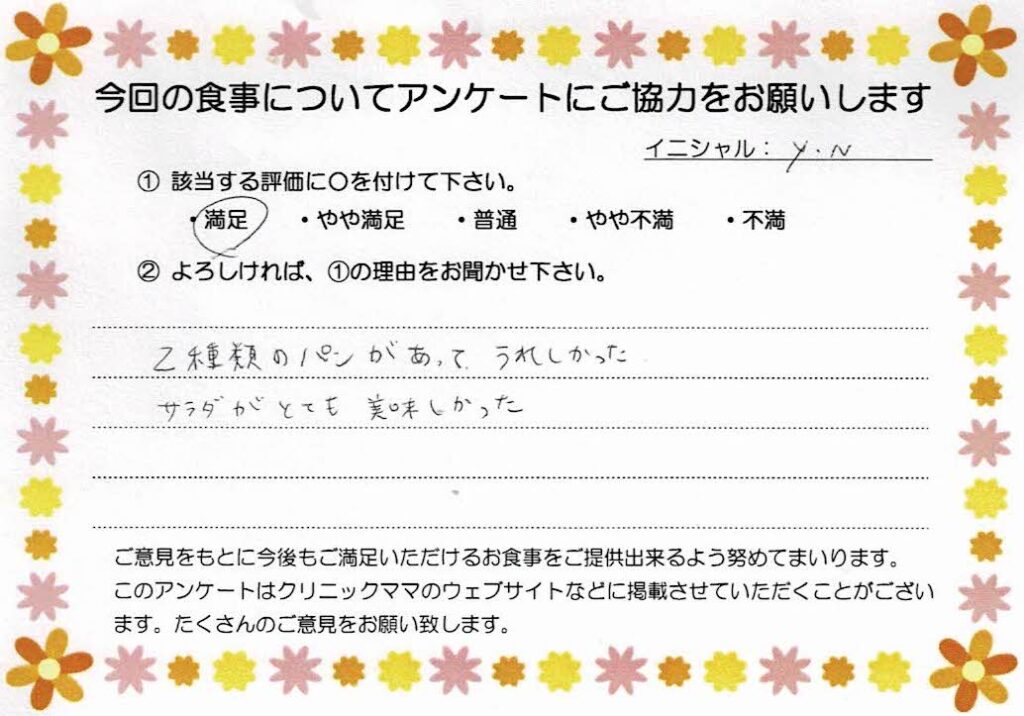 今回の食事についてアンケートにご協力をお願いします
イニシャル： Y.N
① 該当する評価に〇を付けて下さい。
・満足 ・やや満足 ・普通 ・やや不満 ・不満
② よろしければ、①の理由をお聞かせ下さい。
2種類のパンがあって、うれしかった
サラダがとても 美味しかった
ご意見をもとに今後もご満足いただけるお食事をご提供出来るよう努めてまいります。
このアンケートはクリニックママのウェブサイトなどに掲載させていただくことがござい
ます。たくさんのご意見をお願い致します。